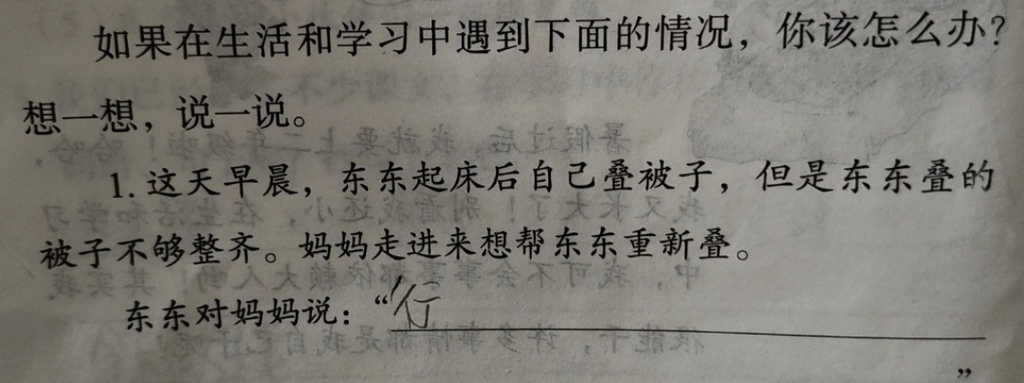 如果在生活和学习中遇到下面的情况，你该怎么办？
想一想，说一说。
1. 这天早晨，东东起床后自己叠被子，但是东东叠的
被子不够整齐。妈妈走进来想帮东东重新叠。
东东对妈妈说：“行
”